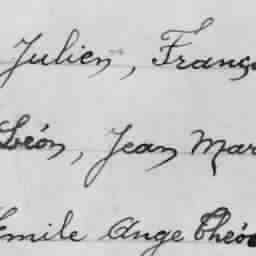 Julien, Franç
Léon, Jean Mar
Emile Ange Théo